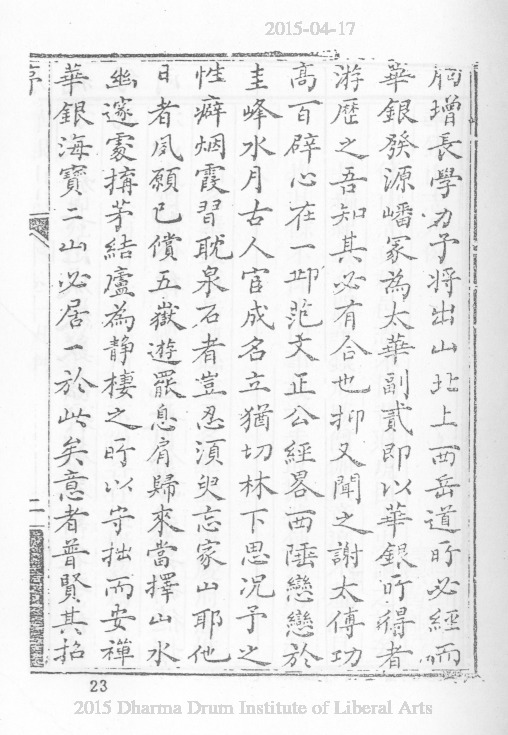 2015-04-17
胸增長學力予將出山北上西岳道所必經而
華銀發源嶓冡為太華副貳即以華銀所得者
游歷之吾知其必有合也抑又聞之謝太傅功
高百辟心在一邱范文正公經畧西陲戀戀於
圭峰水月古人宦成名立猶切林下思况予之
性癖烟霞習耽泉石者豈忍湏臾忘家山耶他
日者夙願已償五嶽遊罷息肩歸來當擇山水
幽邃處搆茅結廬為静棲之所以守拙而安禪
華銀海寶二山必居一於此矣意者普賢其招
序
二
23
2015 Dharma Drum Institute of Liberal Arts